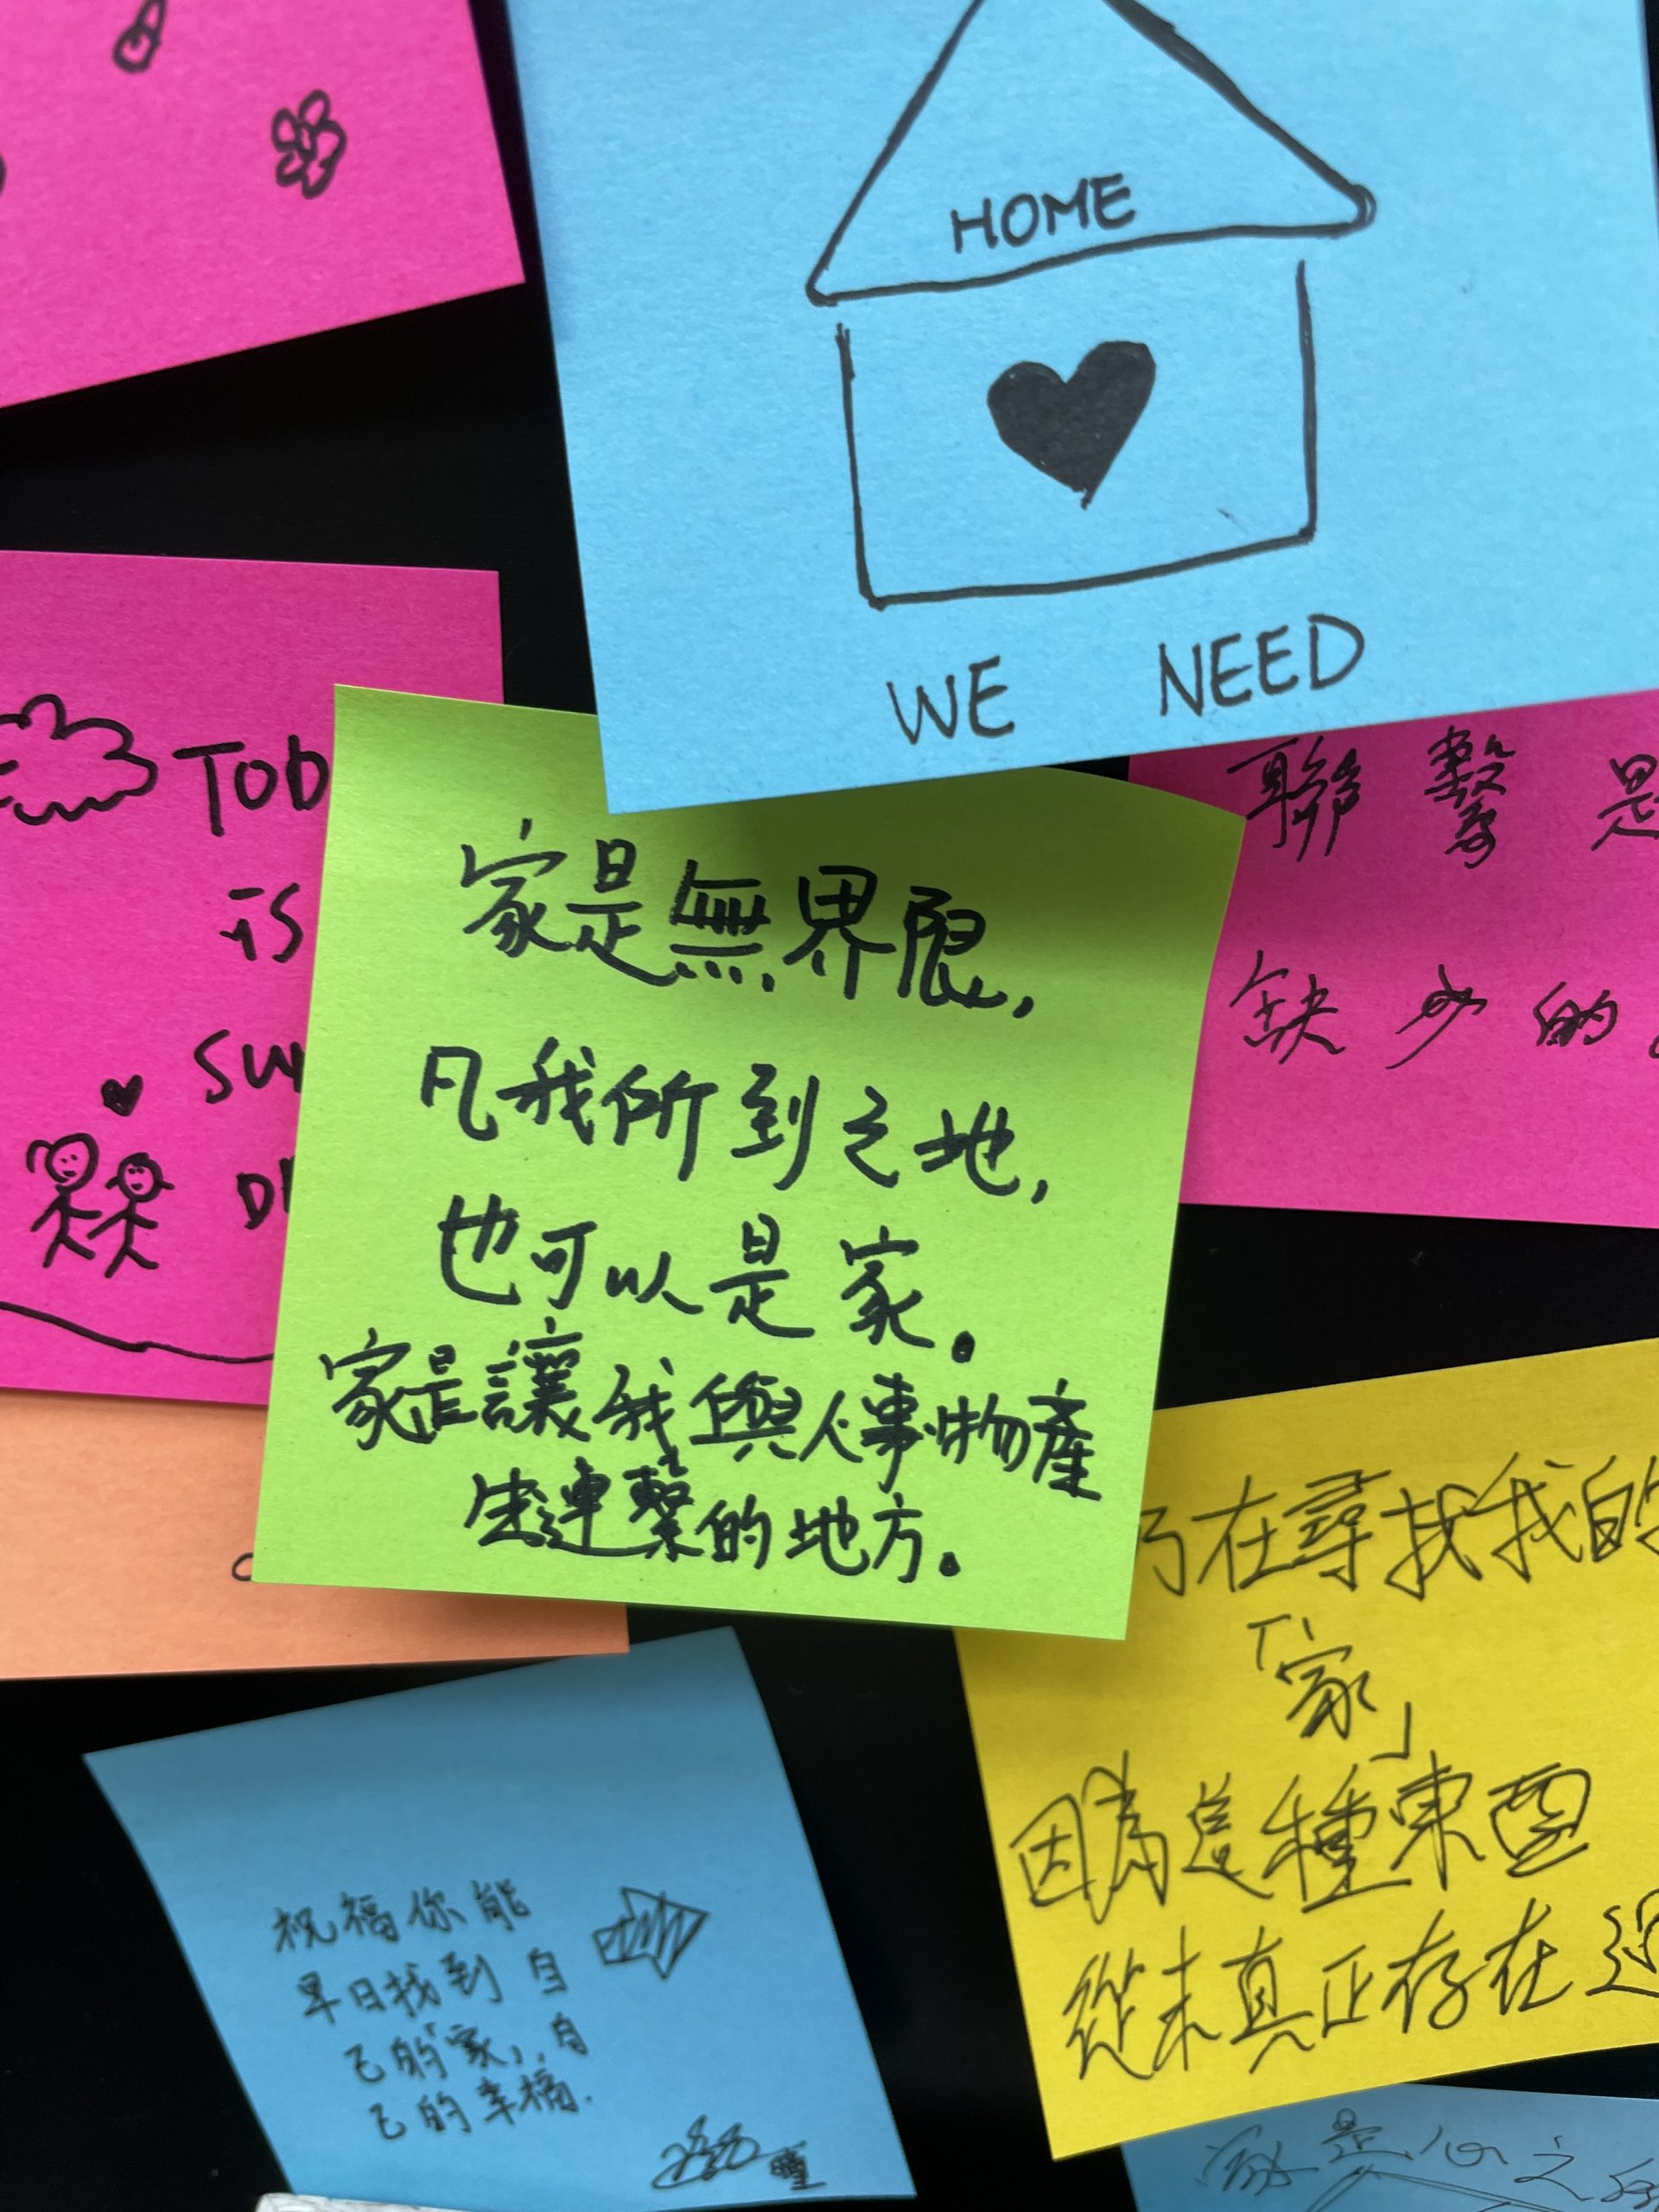 HOME
WE NEED
TOD
is
SU
聯繫是
缺少的
家是無界限,
凡我所到之地,
也可以是家。
家是讓我與人事物產
生連繫的地方。
在尋找我的
「家」
因為這種東西
從未真正存在過
祝福你能
早日找到自
己的「家」,自
己的幸福.
家是心之